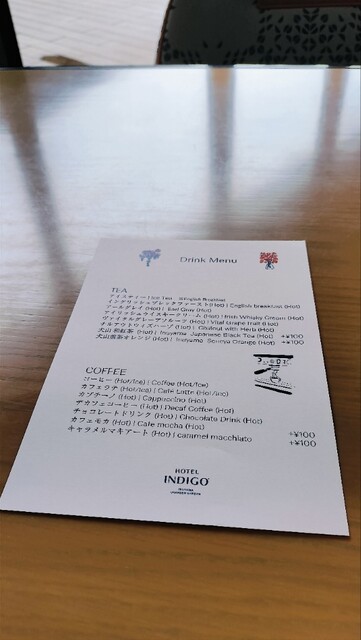 Drink Menu
TEA
アイスティー | Ice Tea English Breakfast
イングリッシュブレックファースト(Hot) | English breakfast (Hot)
アールグレイ (Hot) | Earl Grey (Hot)
アイリッシュウイスキークリーム (Hot) | Irish Whisky Cream (Hot)
ヴァイタルグレープフルーツ (Hot) | Vital Grape fruit (Hot)
(Hot) | Chalnut with Herb (Hot)
犬山 和紅茶 (Hot) | Inuyama Japanese Black Tea (Hot) +¥100
(Hot) | Inuyama Orange (Hot) +¥100
COFFEE
コーヒー (Hot/Ice) | Coffee (Hot/Ice)
カフェラテ (Hot/Ice) | Café Latte (Hot/Ice)
カプチーノ (Hot) | Cappuccino (Hot)
デカフェコーヒー (Hot) | Decaf Coffee (Hot)
チョコレートドリンク (Hot) | Chocolate Drink (Hot)
カフェモカ (Hot) | Cafe mocha (Hot) +¥100
キャラメルマキアート (Hot) | caramel macchiato +¥100
HOTEL
INDIGO